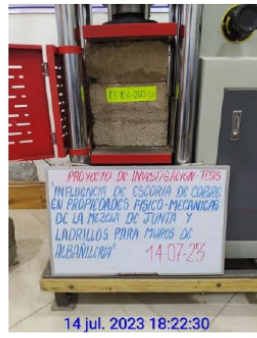 PROYECTO DE INVESTIGACION-TESIS
"INFLUENCIA DE ESCORIA DE COBRE
EN PROPIEDADES FISICO-MECANICAS
DE LA MEZCLA DE JUNTA Y
LADRILLOS PARA MUROS DE
ALBAÑILERIA"
14-07-23
14 jul. 2023 18:22:30